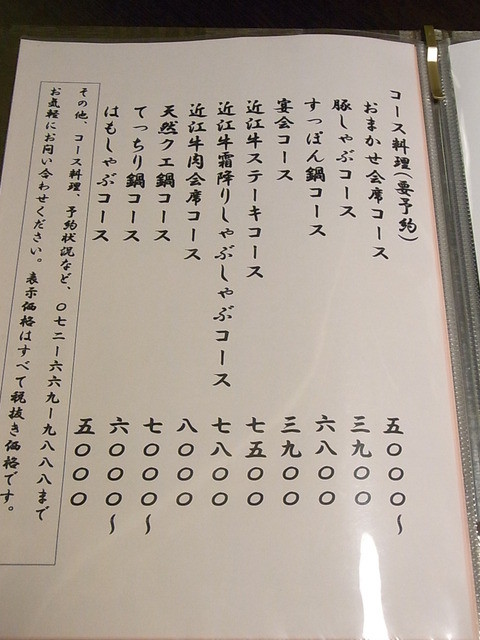 コース料理(要予約)
おまかせ会席コース 五〇〇〇〜
豚しゃぶコース 三九〇〇
すっぽん鍋コース 六八〇〇
宴会コース 三九〇〇
近江牛ステーキコース 七五〇〇
近江牛霜降りしゃぶしゃぶコース 七八〇〇
近江牛肉会席コース 八〇〇〇
天然クエ鍋コース 七〇〇〇〜
てっちり鍋コース 六〇〇〇〜
はもしゃぶコース 五〇〇〇
その他、コース料理、予約状況など、〇七二ー六六九ー九八八八まで
お気軽にお問い合わせください。表示価格はすべて税抜き価格です。